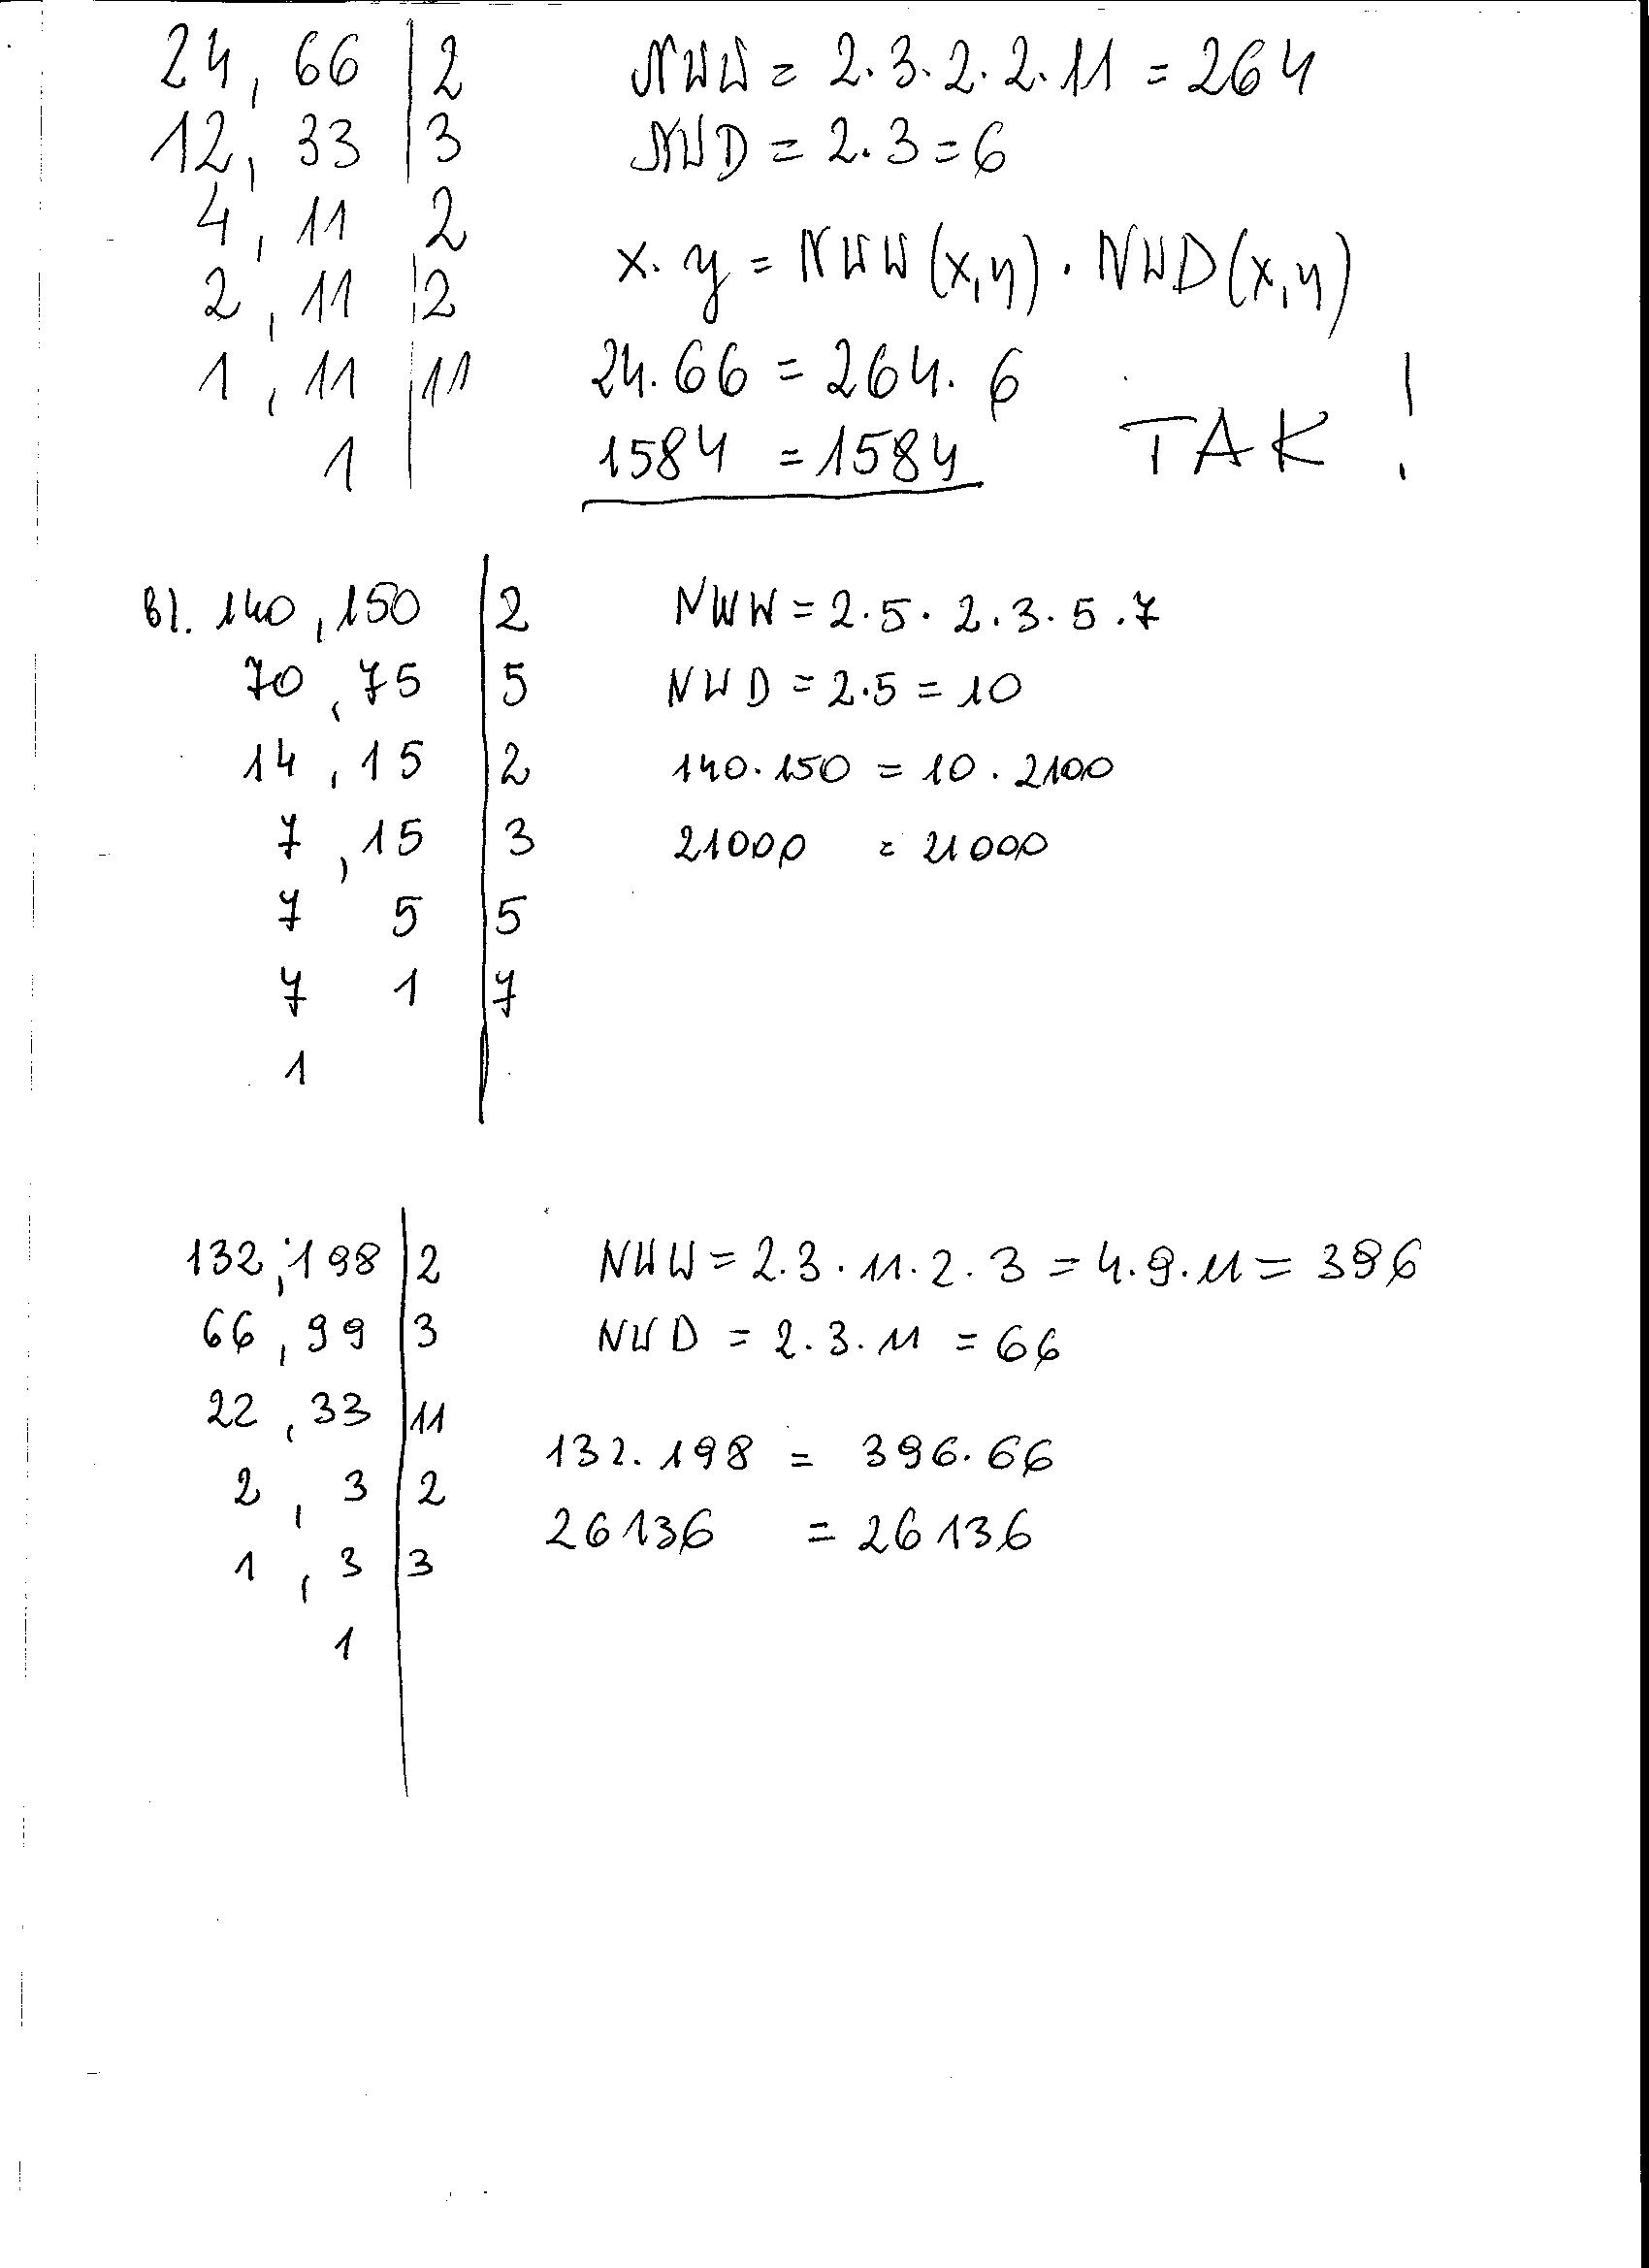 24, 66 | 2
12, 33 | 3
4, 11 2
2, 11 | 2
1, 11 | 11
1
NWW = 2·3·2·2·11 = 264
NWD = 2·3 = 6
x·y = NWW(x,y) · NWD(x,y)
24·66 = 264·6
1584 = 1584
TAK !
b). 140, 150 | 2
70, 75 | 5
14, 15 | 2
7, 15 | 3
7 5 | 5
7 1 | 7
1
NWW = 2·5·2·3·5·7
NWD = 2·5 = 10
140·150 = 10·2100
21000 = 21000
132, 198 | 2
66, 99 | 3
22, 33 | 11
2, 3 | 2
1, 3 | 3
1
NWW = 2·3·11·2·3 = 4·9·11 = 396
NWD = 2·3·11 = 66
132·198 = 396·66
26136 = 26136